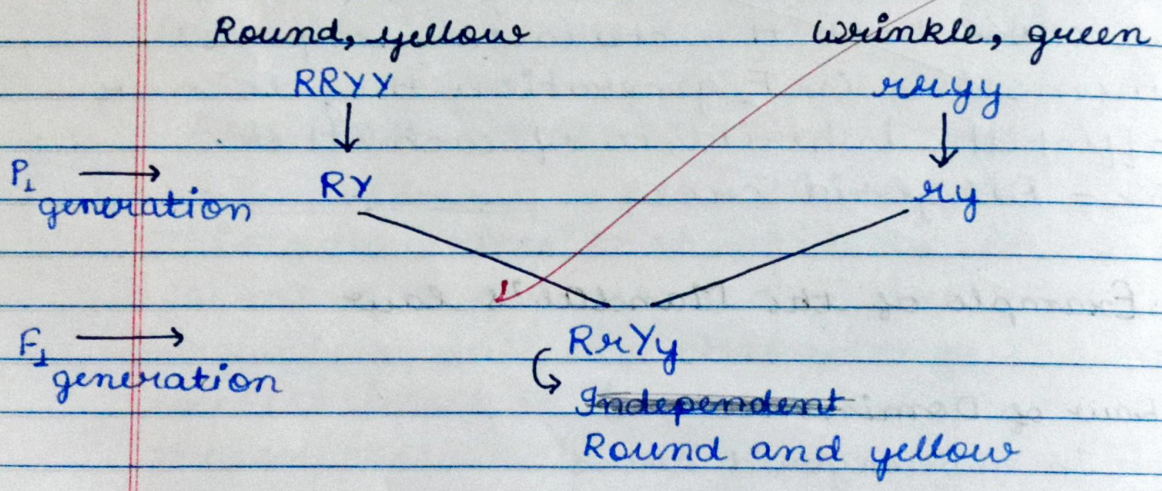 Round, yellow wrinkle, green
RRYY rryy
P1 RY ry
generation
F1 RrYy
generation
Independent
Round and yellow